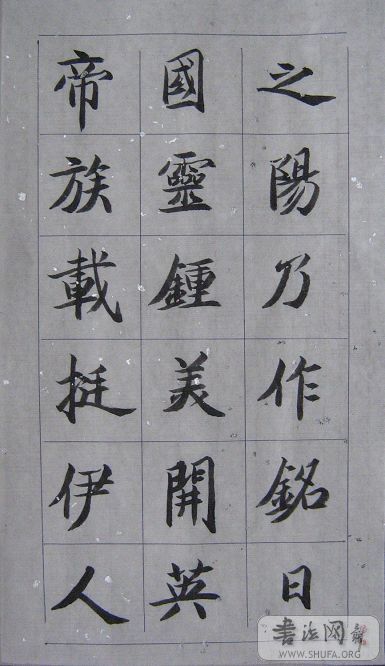 之陽乃作銘曰
國靈鍾美開英
帝族載挺伊人
書法网
WWW.SHUFA.ORG